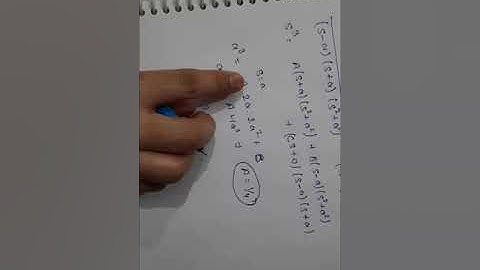 (s-a) (s+a) (s²+a²)
s³ = A(s+a) (s²+a²) + B(s-a) (s²+a²)
+ (Cs+D) (s-a) (s+a)
s=a
a³ = 2a · + B
A 4a³ +
A = 1/4